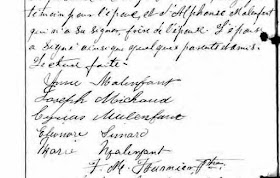 témoin pour l'épouse, et d'Alphonse Malenfant
qui n'a su signer, frère de l'époux. L'épouse
a signé ainsi que quelques parents & amis.
Lecture faite.
Anne Malenfant
Joseph Michaud
Cyprien Malenfant
Elénore Simard
Marie Malenfant
F. M. Fournier Ptre